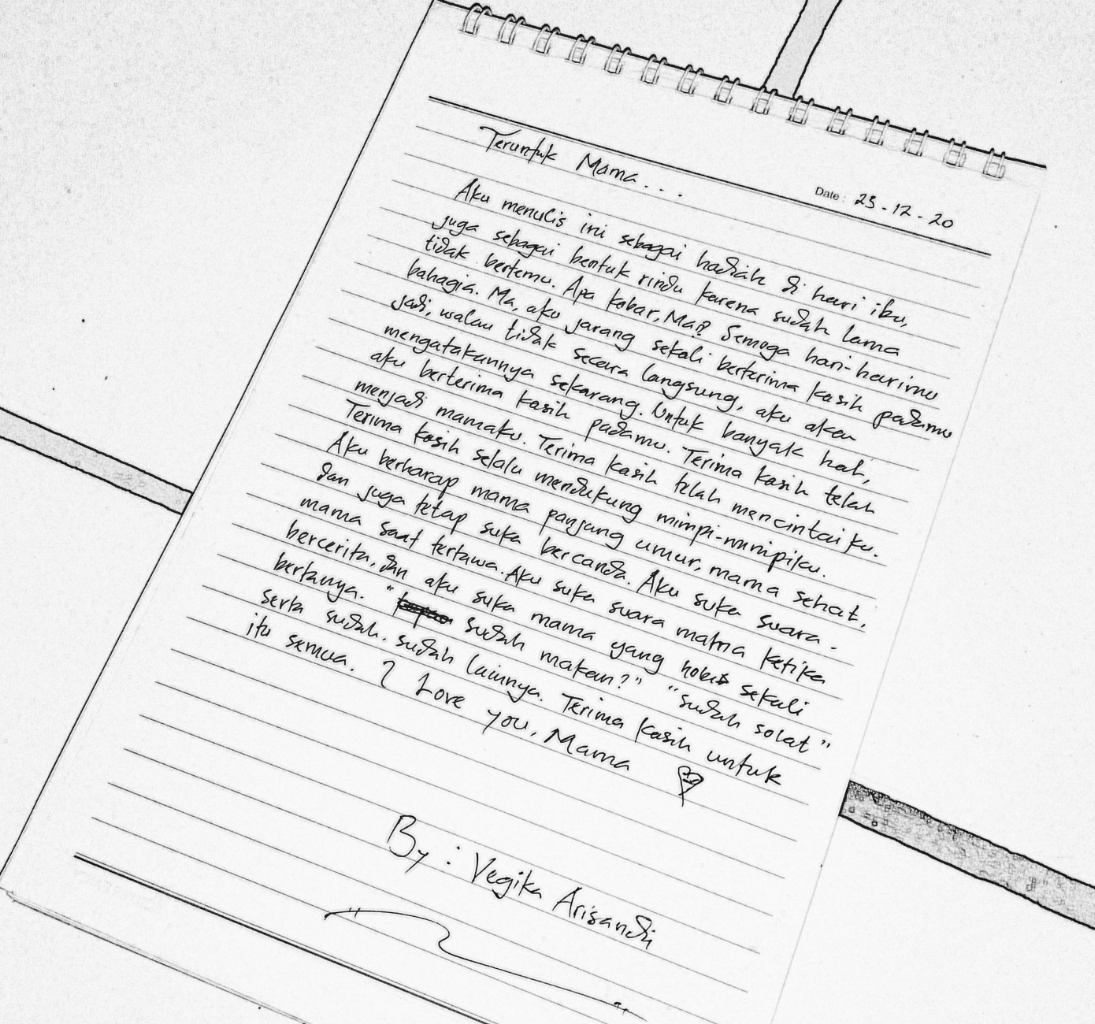 Teruntuk Mama...
Date: 23-12-20
Aku menulis ini sebagai hadiah di hari ibu,
juga sebagai bentuk rindu karena sudah lama
tidak bertemu. Apa kabar, Ma? Semoga hari-harimu
bahagia. Ma, aku jarang sekali berterima kasih padamu
jadi, walau tidak secara langsung, aku akan
mengatakannya sekarang. Untuk banyak hal,
aku berterima kasih padamu. Terima kasih telah
menjadi mamaku. Terima kasih telah mencintaiku.
Terima kasih selalu mendukung mimpi-mimpiku.
Aku berharap mama panjang umur, mama sehat,
dan juga tetap suka bercanda. Aku suka suara
mama saat tertawa. Aku suka suara mama ketika
bercerita, dan aku suka mama yang sekali
bertanya. "sudah makan?" "sudah solat"
serta sudah-sudah lainnya. Terima kasih untuk
itu semua. I Love you, Mama
By: Vegika Arisandi